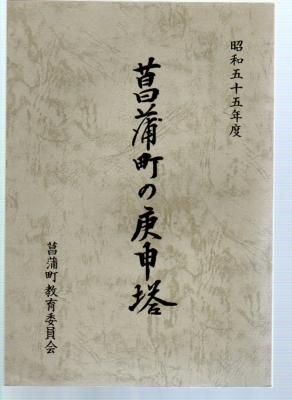 昭和五十五年度
菖蒲町の庚申塔
菖蒲町教育委員会